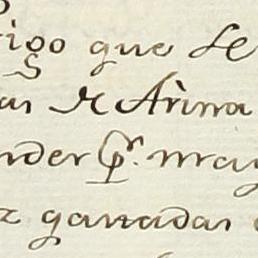 rigo que se
as de Arina
nder pr. may
z ganadas